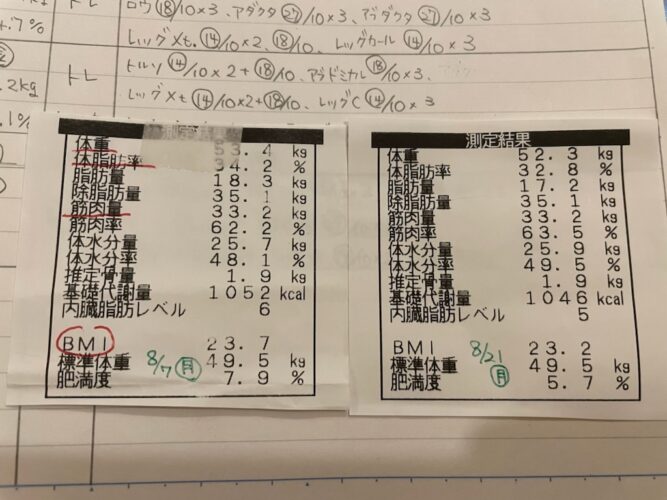 ロウ⑱/10×3、アダクタ㉗/10×3、アブダクタ㉗/10×3
レッグXt.⑭/10×2、⑱/10、レッグカール⑭/10×3
トレ
トルソ⑭/10×2+⑱/10、アブドミカル⑱/10×3、
.2kg
レッグXt⑭/10×2+⑱/10、レッグC⑭/10×3
測定結果
体重 53.4 kg
体脂肪率 34.2 %
脂肪量 18.3 kg
除脂肪量 35.1 kg
筋肉量 33.2 kg
筋肉率 62.2 %
体水分量 25.7 kg
体水分率 48.1 %
推定骨量 1.9 kg
基礎代謝量 1052 kcal
内臓脂肪レベル 6
BMI 23.7
標準体重 49.5 kg
肥満度 7.9 %
8/7 月
測定結果
体重 52.3 kg
体脂肪率 32.8 %
脂肪量 17.2 kg
除脂肪量 35.1 kg
筋肉量 33.2 kg
筋肉率 63.5 %
体水分量 25.9 kg
体水分率 49.5 %
推定骨量 1.9 kg
基礎代謝量 1046 kcal
内臓脂肪レベル 5
BMI 23.2
標準体重 49.5 kg
肥満度 5.7 %
8/21 月